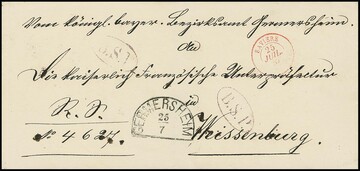 Vom königl. bayer. Bezirksamt Germersheim.
An
Die Kaiserlich Französische Unterpräfectur
R. S.
zu
No. 4627.
Weissenburg.
B.S.P.
B.S.P.
GERMERSHEIM
25
7
25
JUIL.